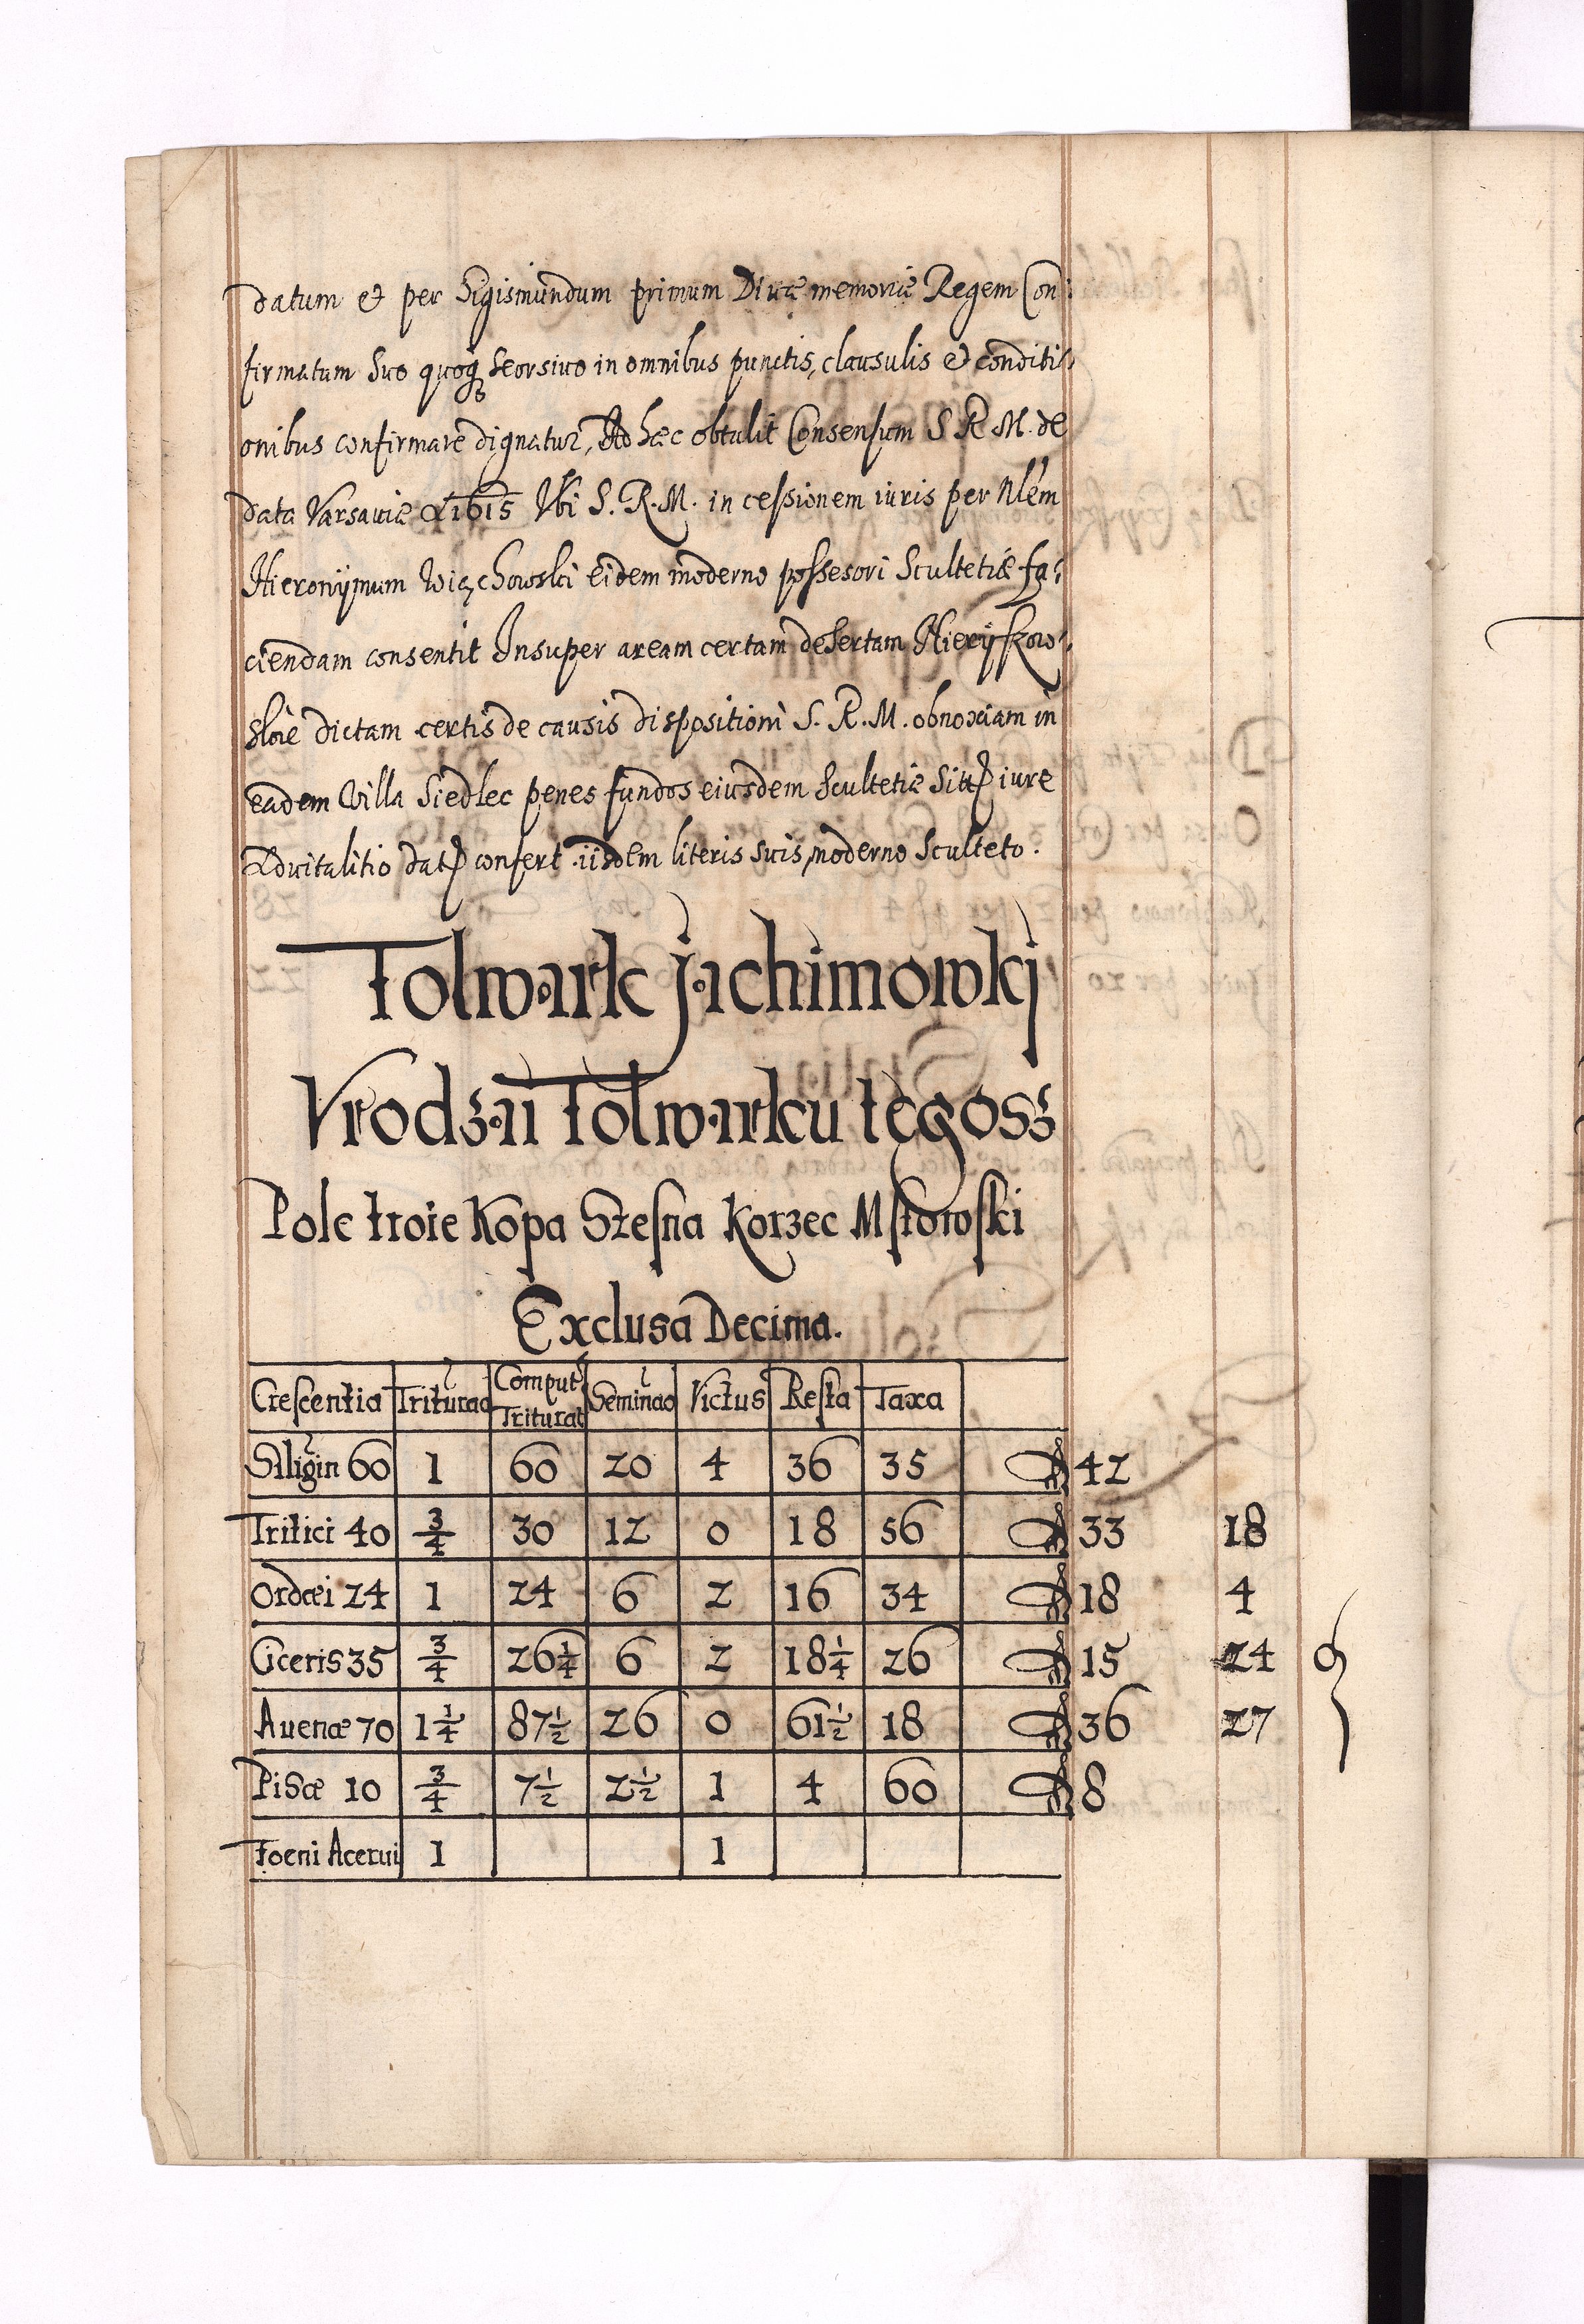 datum et per Sigismundum primum Divæ memoriæ Regem Con:
firmatum suo quoq seorsivo in omnibus punctis, clausulis et conditi:
onibus confirmare dignatur, Ad hæc obtulit Consensum S R M. de
data Varsaviæ 1615 Ubi S. R. M. in cessionem iuris per Nlem
Hieronymum Więchowski eidem moderno possesori Scultetiæ fa:
ciendam consentit Insuper aream certam desertam Hieryszkow:
skie dictam certis de causis dispositioni S. R. M. obnoxiam in
eadem Villa Siedlec penes fundos eiusdem Scultetiæ sit iure
Advitalitio dat confert iisdem literis suis moderno Sculteto.
Folwark Jachimowkj
Vrodzai Folwarku tegosz
Pole troie Kopa Szesna Korzec Mstowski
Exclusa Decima.
Crescentia Triturao Comput Triturat Seminao Victus Resta Taxa
Siligin 60 1 60 20 4 36 35 42
Tritici 40 3/4 30 12 0 18 56 33 18
Ordæi 24 1 24 6 2 16 34 18 4
Ciceris 35 3/4 26 1/4 6 2 18 1/4 26 15 24
Auenæ 70 1 1/4 87 1/2 26 0 61 1/2 18 36 27
Pisæ 10 3/4 7 1/2 2 1/2 1 4 60 8
Foeni Acerui 1 1